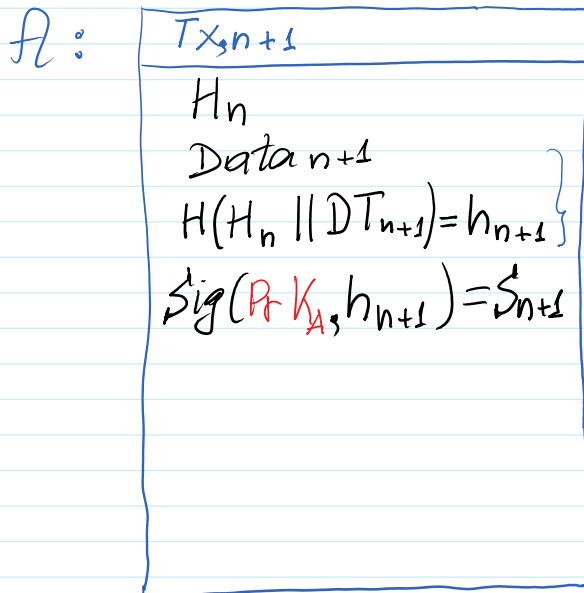 A:
Tx,n+1
Hn
Data n+1
H(Hn || DTn+1)=hn+1
Sig(PrKA,hn+1)=Sn+1